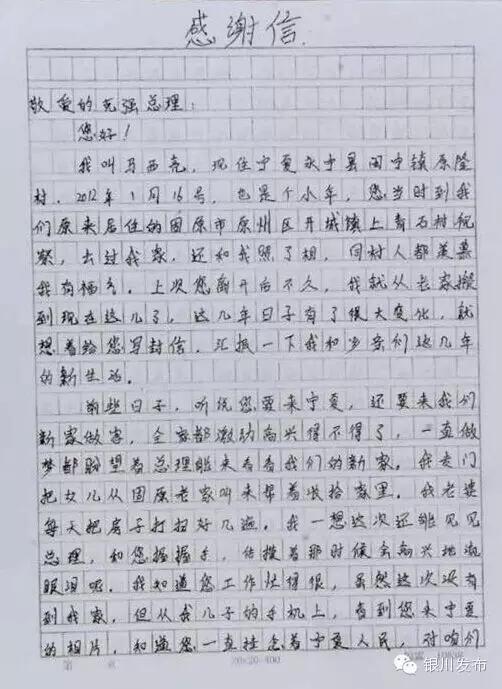 感谢信.
敬爱的克强总理:
您好!
我叫马西克,现住宁夏永宁县闽宁镇原隆
村,2012年1月16号,也是个小年,您当时到我
们原来居住的固原市原州区开城镇上青石村视
察,去过我家,还和我照了相,同村人都羡慕
我有福气。上次您离开后不久,我就从老家搬
到现在这儿了,这几年日子有了很大变化,就
想着给您写封信,汇报一下我和乡亲们这几年
的新生活。
前些日子,听说您要来宁夏,还要来我们
新家做客,全家都激动高兴得不得了,一直做
梦都盼望着总理能来看看我们的新家。我专门
把女儿从固原老家叫来帮着收拾家里。我老婆
每天把房子打扫好几遍。我一想这次还能见见
总理,和您握握手,估摸着那时候会高兴地流
眼泪呢。我知道您工作忙得很,虽然这次没有
到我家,但从我儿子的手机上,看到您来宁夏
的相片,知道您一直挂念着宁夏人民,对咱们
20×20=400
银川发布